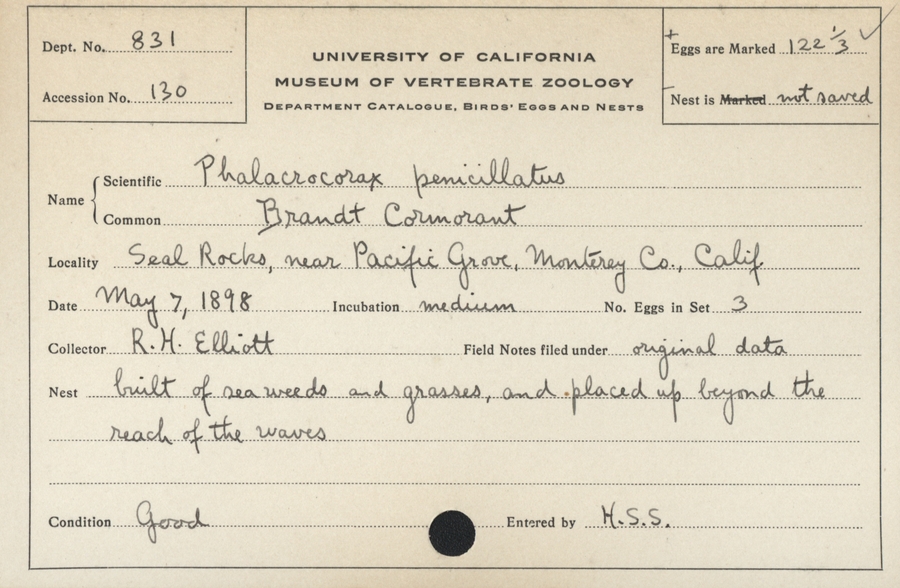 Dept. No. 831
Accession No. 130
UNIVERSITY OF CALIFORNIA
MUSEUM OF VERTEBRATE ZOOLOGY
DEPARTMENT CATALOGUE, BIRDS' EGGS AND NESTS
+ Eggs are Marked 122 1/3 ✓
Nest is Marked not saved
Name
Scientific Phalacrocorax penicillatus
Common Brandt Cormorant
Locality Seal Rocks, near Pacific Grove, Monterey Co., Calif.
Date May 7, 1898 Incubation medium No. Eggs in Set 3
Collector R. H. Elliott Field Notes filed under original data
Nest built of sea weeds and grasses, and placed up beyond the
reach of the waves
Condition Good Entered by H.S.S.